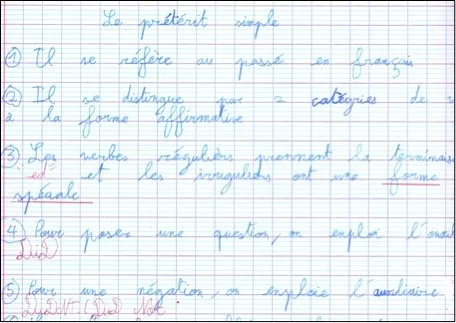 Le prétérit simple
① Il se réfère au passé en français
② Il se distingue par 2 catégries de
à la forme affirmative
③ Les verbes réguliers prennent la terminais
"ed" et les irréguliers ont une forme
spéciale
④ Pour poser une question, on emploi l'auxil
DID
⑤ Pour une négation, on emploie l'auxiliaire
DIDN'T / DID NOT.